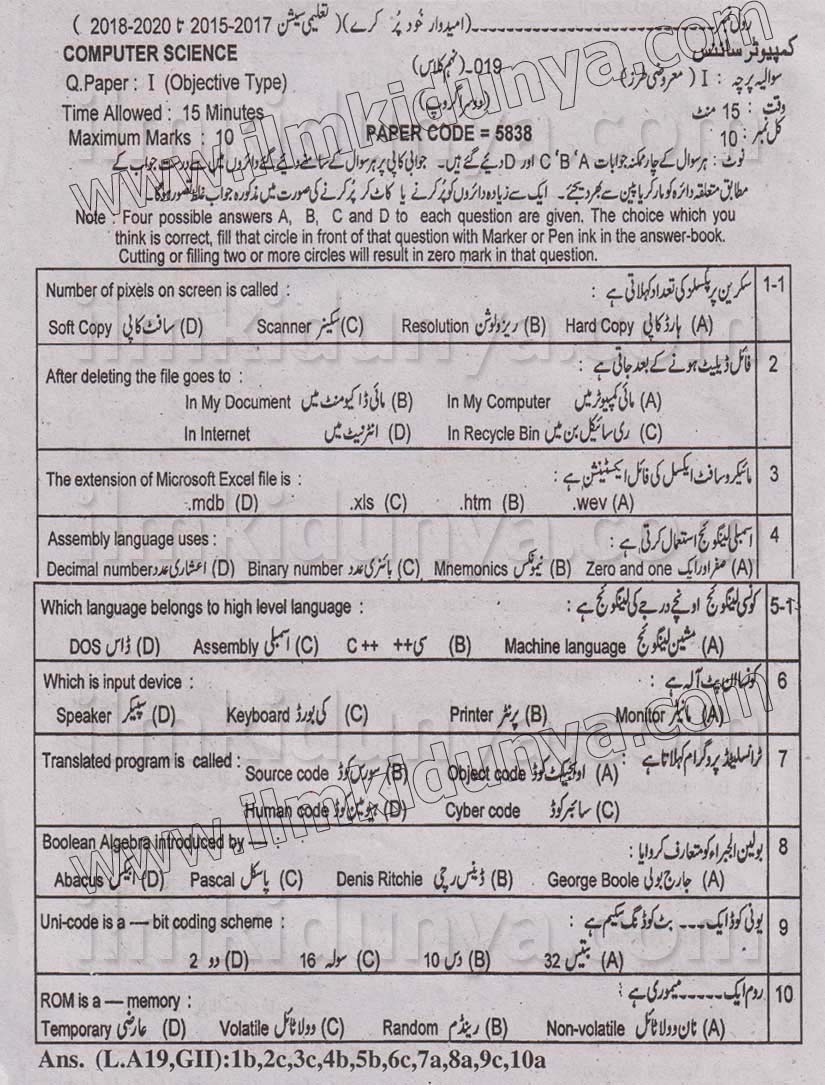 رول نمبر (امیدوار خود پُر کرے) ( تعلیمی سیشن 2017-2015 تا 2020-2018 )
COMPUTER SCIENCE 019- (نہم کلاس) کمپیوٹر سائنس
Q.Paper : I (Objective Type) (دوسرا گروپ) سوالیہ پرچہ : I ( معروضی طرز )
Time Allowed : 15 Minutes وقت : 15 منٹ
Maximum Marks : 10 PAPER CODE = 5838 کل نمبر : 10
نوٹ : ہر سوال کے چار ممکنہ جوابات A ' B ' C اور D دیئے گئے ہیں۔ جوابی کاپی پر ہر سوال کے سامنے دیئے گئے دائروں میں سے درست جواب کے
مطابق متعلقہ دائرہ کو مارکر یا پین سے بھر دیجئے۔ ایک سے زیادہ دائروں کو پُر کرنے یا کاٹ کر پُر کرنے کی صورت میں مذکورہ جواب غلط تصور ہو گا۔
Note : Four possible answers A, B, C and D to each question are given. The choice which you
think is correct, fill that circle in front of that question with Marker or Pen ink in the answer-book.
Cutting or filling two or more circles will result in zero mark in that question.
Number of pixels on screen is called : سکرین پر پکسلز کی تعداد کہلاتی ہے : 1-1
Soft Copy سافٹ کاپی (D) Scanner سکینر (C) Resolution ریزولوشن (B) Hard Copy ہارڈ کاپی (A)
After deleting the file goes to : فائل ڈیلیٹ ہونے کے بعد جاتی ہے : 2
In My Document مائی ڈاکیومنٹ میں (B) In My Computer مائی کمپیوٹر میں (A)
In Internet انٹرنیٹ میں (D) In Recycle Bin ری سائیکل بن میں (C)
The extension of Microsoft Excel file is : مائیکروسافٹ ایکسل کی فائل ایکسٹینشن ہے : 3
.mdb (D) .xls (C) .htm (B) .wev (A)
Assembly language uses : اسمبلی لینگوئج استعمال کرتی ہے : 4
Decimal number اعشاری عدد (D) Binary number بائنری عدد (C) Mnemonics نیمونکس (B) Zero and one صفر اور ایک (A)
Which language belongs to high level language : کونسی لینگوئج اونچے درجے کی لینگوئج ہے : 5-1
DOS ڈاس (D) Assembly اسمبلی (C) C ++ سی++ (B) Machine language مشین لینگوئج (A)
Which is input device : کونسا ان پٹ آلہ ہے : 6
Speaker سپیکر (D) Keyboard کی بورڈ (C) Printer پرنٹر (B) Monitor مانیٹر (A)
Translated program is called : ٹرانسلیٹڈ پروگرام کہلاتا ہے : 7
Source code سورس کوڈ (B) Object code اوبجیکٹ کوڈ (A)
Human code ہیومین کوڈ (D) Cyber code سائبر کوڈ (C)
Boolean Algebra introduced by — بولین الجبراء کو متعارف کروایا : 8
Abacus ابیکس (D) Pascal پاسکل (C) Denis Ritchie ڈینس رچی (B) George Boole جارج بولی (A)
Uni-code is a — bit coding scheme : یونی کوڈ ایک --- بٹ کوڈنگ سکیم ہے : 9
2 دو (D) 16 سولہ (C) 10 دس (B) 32 بتیس (A)
ROM is a — memory : روم ایک ----- میموری ہے : 10
Temporary عارضی (D) Volatile وولاٹائل (C) Random رینڈم (B) Non-volatile نان وولاٹائل (A)
Ans. (L.A19,GII):1b,2c,3c,4b,5b,6c,7a,8a,9c,10a
www.ilmkidunya.com
www.ilmkidunya.com
ilmkidunya.com
ilmkidunya.com
ilmkidunya.com
ilmkidunya.com
ilmkidunya.com